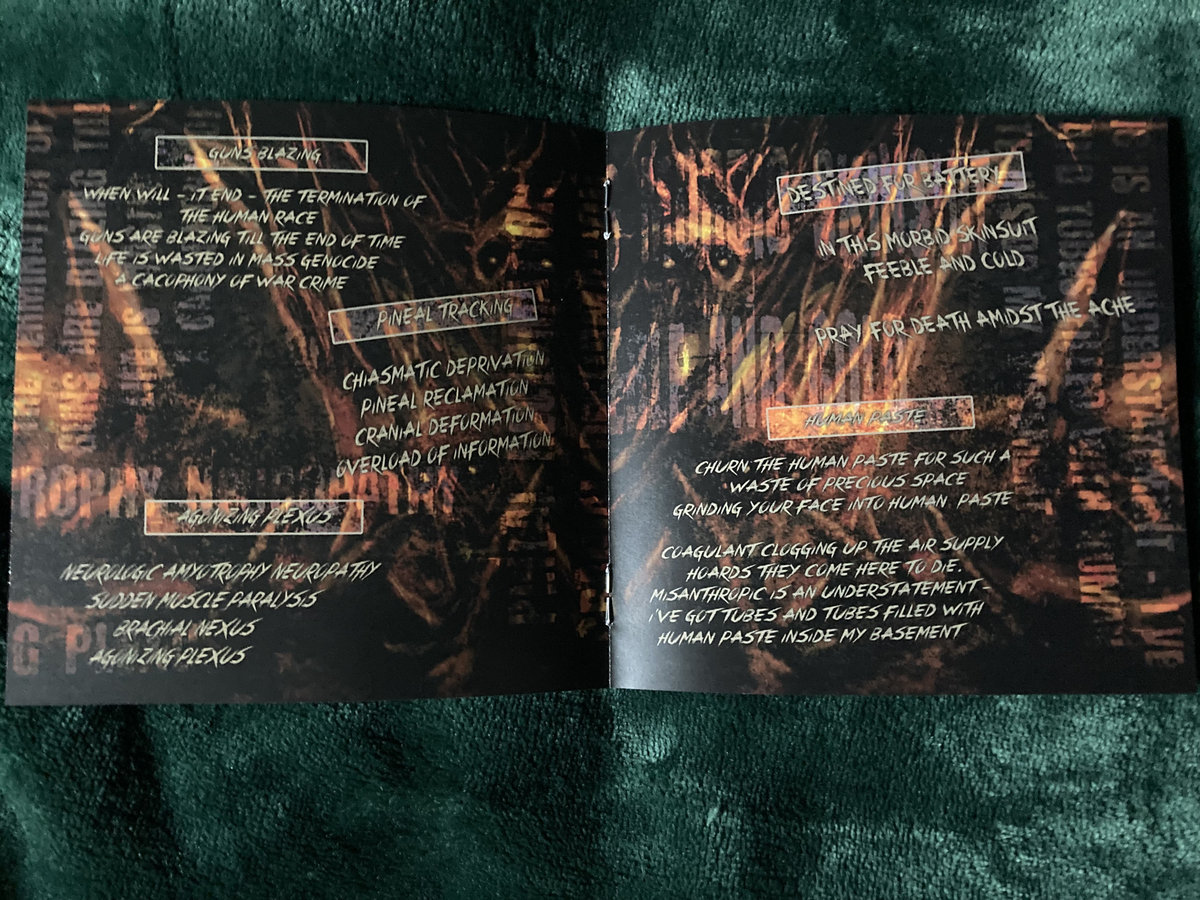 GUNS BLAZING
WHEN WILL - IT END - THE TERMINATION OF
THE HUMAN RACE
GUNS ARE BLAZING TILL THE END OF TIME
LIFE IS WASTED IN MASS GENOCIDE
A CACOPHONY OF WAR CRIME
PINEAL TRACKING
CHIASMATIC DEPRIVATION
PINEAL RECLAMATION
CRANIAL DEFORMATION
OVERLOAD OF INFORMATION
AGONIZING PLEXUS
NEUROLOGIC AMYOTROPHY NEUROPATHY
SUDDEN MUSCLE PARALYSIS
BRACHIAL NEXUS
AGONIZING PLEXUS
DESTINED FOR BATTERY
IN THIS MORBID SKINSUIT
FEEBLE AND COLD
PRAY FOR DEATH AMIDST THE ACHE
HUMAN PASTE
CHURN THE HUMAN PASTE FOR SUCH A
WASTE OF PRECIOUS SPACE
GRINDING YOUR FACE INTO HUMAN PASTE
COAGULANT CLOGGING UP THE AIR SUPPLY
HOARDS THEY COME HERE TO DIE.
MISANTHROPIC IS AN UNDERSTATEMENT -
I'VE GOT TUBES AND TUBES FILLED WITH
HUMAN PASTE INSIDE MY BASEMENT